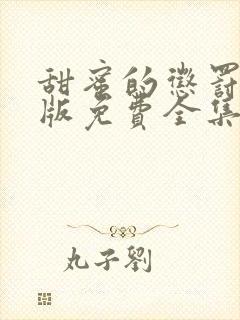 甜蜜的懲罰
版免費全集
丸子劉